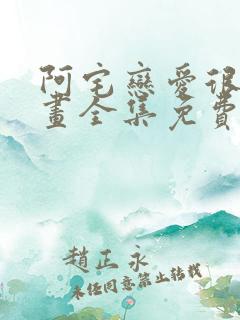 阿宅戀愛很
畫全集免費
趙正永
未任同意禁止转载